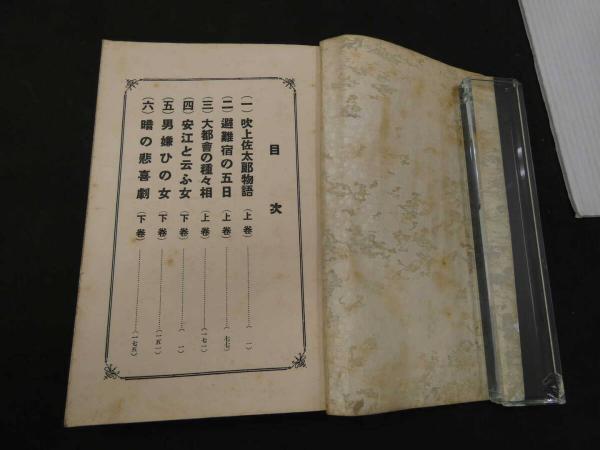 目次
(一) 吹上佐太郎物語 (上卷)…………(一)
(二) 避難宿の五日 (上卷)…………(七七)
(三) 大都會の種々相 (上卷)…………(一七一)
(四) 安江と云ふ女 (下卷)…………(一)
(五) 男嫌ひの女 (下卷)…………(一五一)
(六) 暗の悲喜劇 (下卷)…………(一七五)